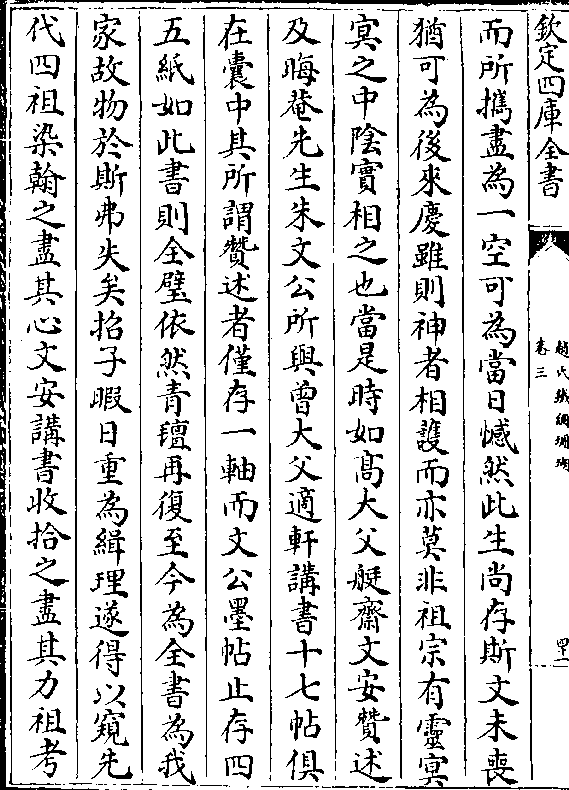 欽定四庫全書
趙氏鐵網珊瑚
卷三
四十一
而所攜盡為一空可為當日憾然此生尚存斯文未喪
猶可為後來慶雖則神者相護而亦莫非祖宗有靈冥
冥之中陰實相之也當是時如髙大父艇齋文安贊述
及晦菴先生朱文公所與曾大父適軒講書十七帖俱
在囊中其所謂贊述者僅存一軸而文公墨帖止存四
五紙如此書則全璧依然青氊再復至今為全書為我
家故物於斯弗失矣招子暇日重為緝理遂得以窺先
代四祖染翰之盡其心文安講書收拾之盡其力祖考